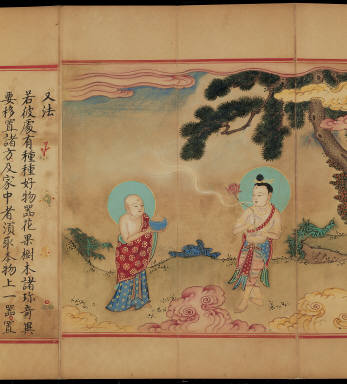 又法
若彼處有種種好物器花果樹木諸珍奇異
要移置諸方及家中者須取本物上一器置